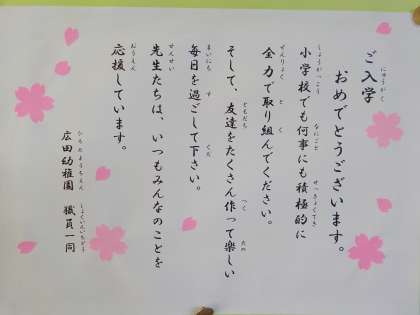 ご入学
おめでとうございます。
小学校でも何事にも積極的に
全力で取り組んでください。
そして、友達をたくさん作って楽しい
毎日を過ごして下さい。
先生たちは、いつもみんなのことを
応援しています。
広田幼稚園 職員一同